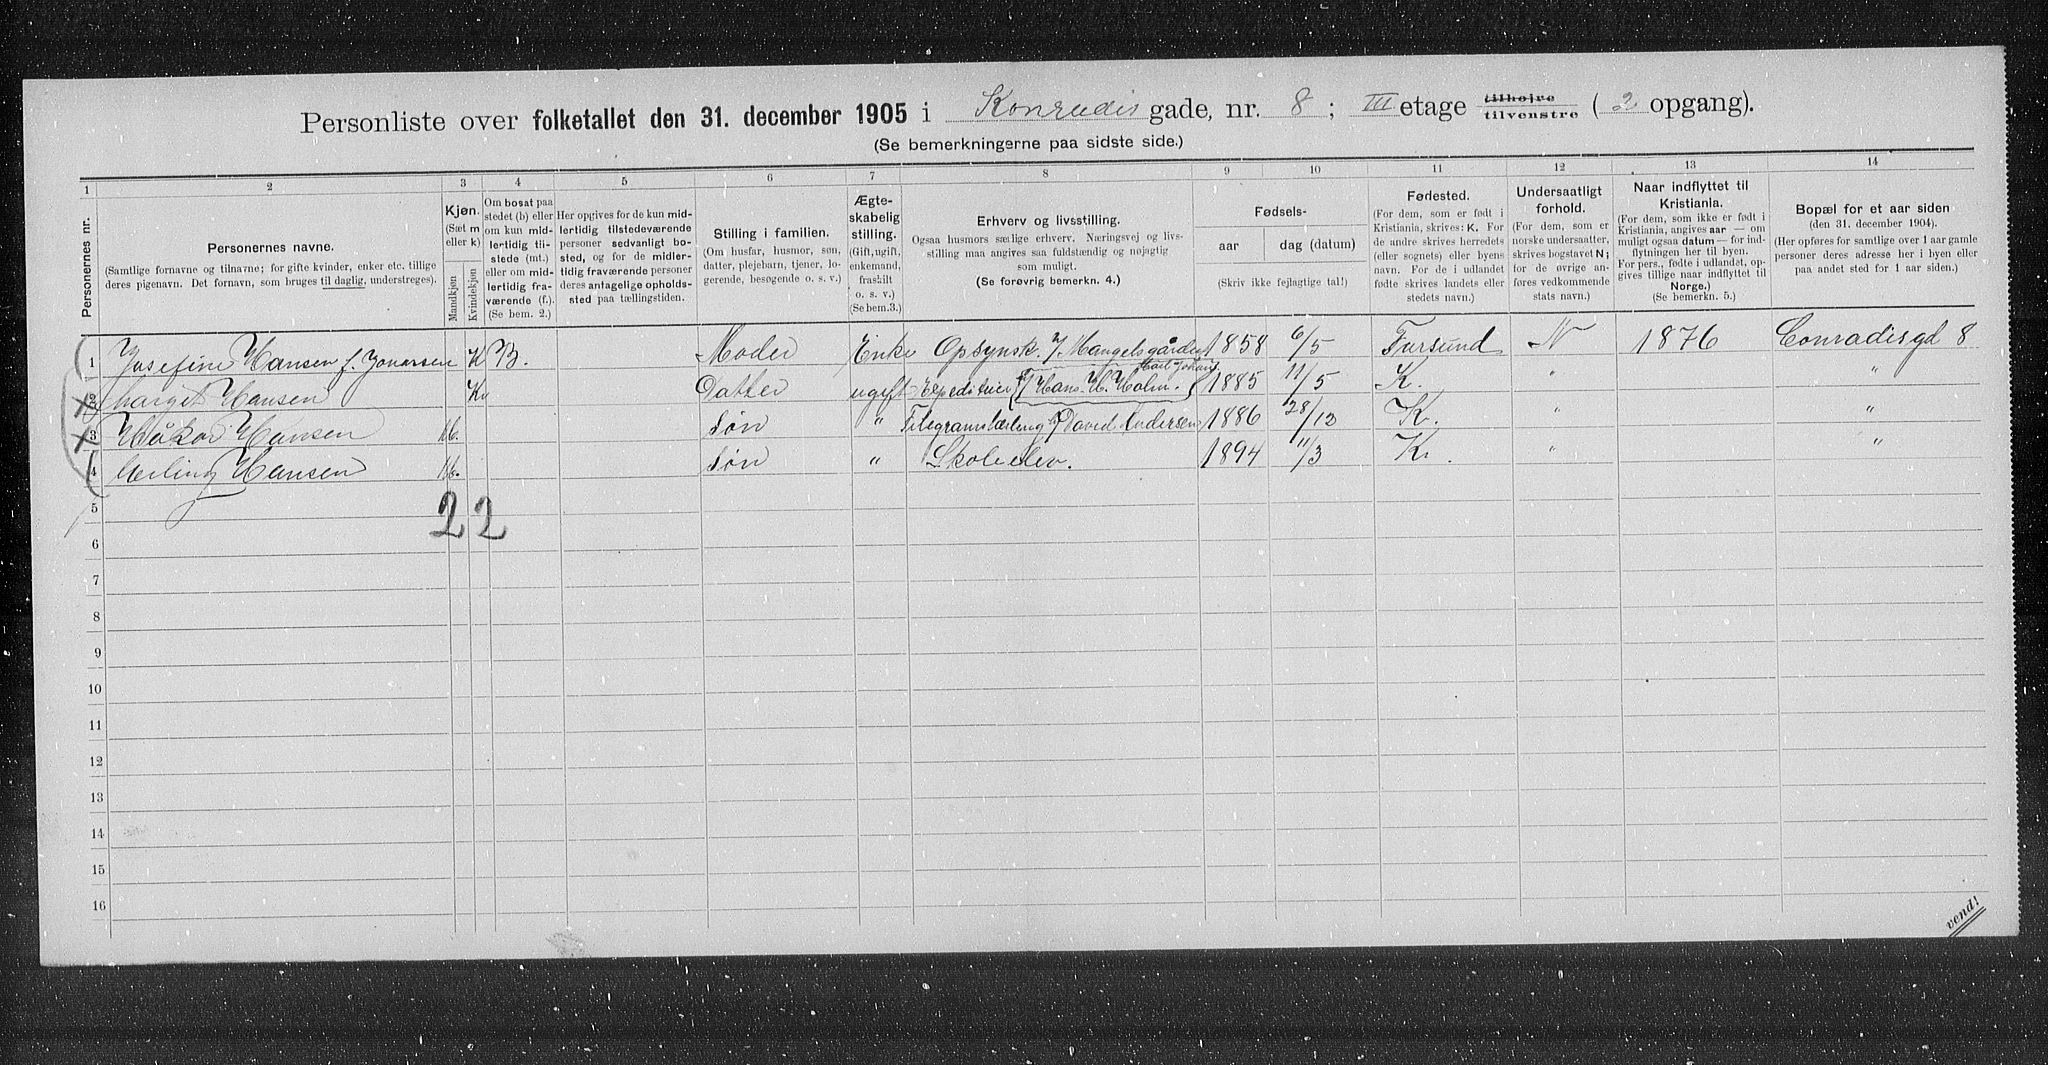 Personliste over folketallet den 31. december 1905 i Konradis gade, nr. 8; III etage tilhøjre tilvenstre (2 opgang).
(Se bemerkningerne paa sidste side.)
1 2 3 4 5 6 7 8 9 10 11 12 13 14
Personernes nr.
Personernes navne.
(Samtlige fornavne og tilnavne; for gifte kvinder, enker etc. tillige
deres pigenavn. Det fornavn, som bruges til daglig, understreges).
Kjøn.
(Sæt m
eller k)
Mandkjøn
Kvindekjøn
Om bosat paa
stedet (b) eller
om kun mid-
lertidig til-
stede (mt.)
eller om mid-
lertidig fra-
værende (f.).
(Se bem. 2.)
Her opgives for de kun mid-
lertidig tilstedeværende
personer sedvanligt bo-
sted, og for de midler-
tidig fraværende personer
deres antagelige opholds-
sted paa tællingstiden.
Stilling i familien.
(Om husfar, husmor, søn,
datter, plejebarn, tjener, lo-
gerende, besøgende o. s. v.)
Ægte-
skabelig
stilling.
(Gift, ugift,
enkemand,
fraskilt
o. s. v.)
(Se bem.3.)
Erhverv og livsstilling.
Ogsaa husmors særlige erhverv. Næringsvej og livs-
stilling maa angives saa fuldstændig og nøjagtig
som muligt.
(Se forøvrig bemerkn. 4.)
Fødsels-
aar dag (datum)
(Skriv ikke fejlagtige tal!)
Fødested.
(For dem, som er født i
Kristiania, skrives: K. For
de andre skrives herredets
(eller sognets) eller byens
navn. For de i udlandet
fødte skrives landets eller
stedets navn.)
Undersaatligt
forhold.
(For dem, som er
norske undersaatter,
skrives bogstavet N;
for de øvrige an-
føres vedkommende
stats navn.)
Naar indflyttet til
Kristiania.
(For dem, som ikke er født i
Kristiania, angives aar — om
muligt ogsaa datum — for ind-
flytningen her til byen.
For pers., fødte i udlandet, op-
gives tillige naar indflyttet til
Norge.)
(Se bemerkn. 5.)
Bopæl for et aar siden
(den 31. december 1904).
(Her opføres for samtlige over 1 aar gamle
personer deres adresse her i byen eller
paa andet sted for 1 aar siden.)
1 Josefine Hansen f. Jonassen K B. Moder Enke Opsynsk. I/ Mangelsgården 1858 6/5 Farsund N 1876 Conradisgd 8
Karl Johans
2 Margit Hansen K Datter ugift Expeditrice I/ Hans H. Holm. 1885 11/5 K. " "
3 Håkon Hansen M. Søn " Filegramslærling I/ David Andersen 1886 28/12 K. " "
4 Erling Hansen M. Søn " Skoleelev. 1894 11/3 K. " "
2 2
5
6
7
8
9
10
11
12
13
14
15
16
vend!